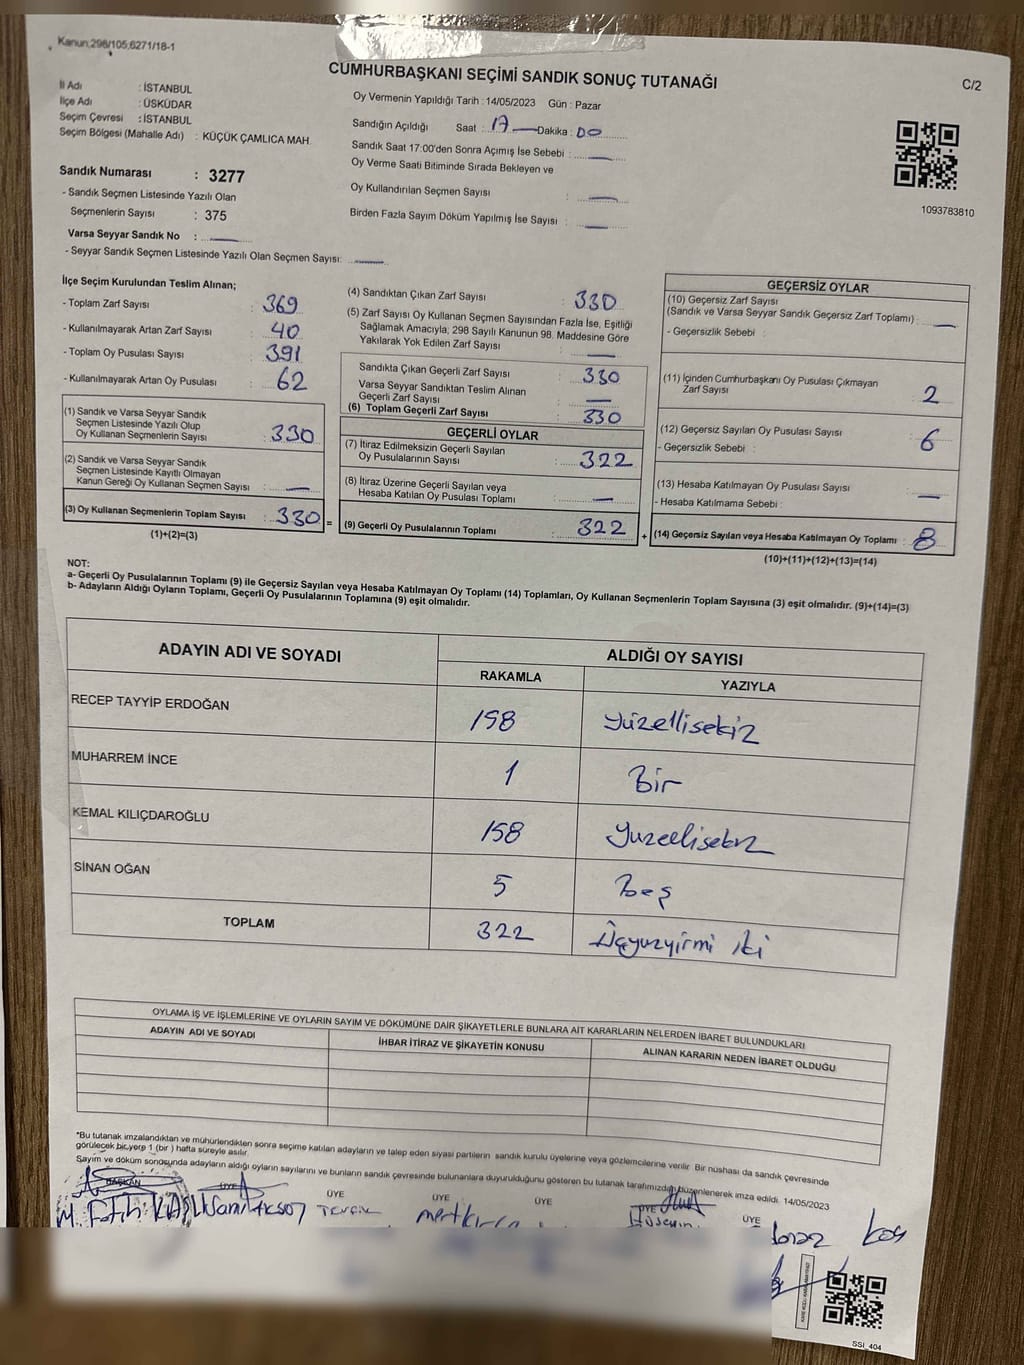 Kanun;298/105;6271/18-1
CUMHURBAŞKANI SEÇİMİ SANDIK SONUÇ TUTANAĞI
C/2
İl Adı : İSTANBUL
İlçe Adı : ÜSKÜDAR
Seçim Çevresi : İSTANBUL
Seçim Bölgesi (Mahalle Adı) : KÜÇÜK ÇAMLICA MAH.
Sandık Numarası : 3277
- Sandık Seçmen Listesinde Yazılı Olan
Seçmenlerin Sayısı : 375
Varsa Seyyar Sandık No : —
- Seyyar Sandık Seçmen Listesinde Yazılı Olan Seçmen Sayısı: —
Oy Vermenin Yapıldığı Tarih : 14/05/2023 Gün : Pazar
Sandığın Açıldığı Saat : 17 — Dakika : 00
Sandık Saat 17:00'den Sonra Açımış İse Sebebi : —
Oy Verme Saati Bitiminde Sırada Bekleyen ve
Oy Kullandırılan Seçmen Sayısı : —
Birden Fazla Sayım Döküm Yapılmış İse Sayısı : —
1093783810
İlçe Seçim Kurulundan Teslim Alınan;
- Toplam Zarf Sayısı : 369
- Kullanılmayarak Artan Zarf Sayısı : 40
- Toplam Oy Pusulası Sayısı : 391
- Kullanılmayarak Artan Oy Pusulası : 62
(1) Sandık ve Varsa Seyyar Sandık
Seçmen Listesinde Yazılı Olup
Oy Kullanan Seçmenlerin Sayısı : 330
(2) Sandık ve Varsa Seyyar Sandık
Seçmen Listesinde Kayıtlı Olmayan
Kanun Gereği Oy Kullanan Seçmen Sayısı : —
(3) Oy Kullanan Seçmenlerin Toplam Sayısı : 330 =
(1)+(2)=(3)
(4) Sandıktan Çıkan Zarf Sayısı : 330
(5) Zarf Sayısı Oy Kullanan Seçmen Sayısından Fazla İse, Eşitliği
Sağlamak Amacıyla; 298 Sayılı Kanunun 98. Maddesine Göre
Yakılarak Yok Edilen Zarf Sayısı : —
Sandıkta Çıkan Geçerli Zarf Sayısı : 330
Varsa Seyyar Sandıktan Teslim Alınan
Geçerli Zarf Sayısı : —
(6) Toplam Geçerli Zarf Sayısı : 330
GEÇERLİ OYLAR
(7) İtiraz Edilmeksizin Geçerli Sayılan
Oy Pusulalarının Sayısı : 322
(8) İtiraz Üzerine Geçerli Sayılan veya
Hesaba Katılan Oy Pusulası Toplamı : —
(9) Geçerli Oy Pusulalarının Toplamı : 322 +
GEÇERSİZ OYLAR
(10) Geçersiz Zarf Sayısı
(Sandık ve Varsa Seyyar Sandık Geçersiz Zarf Toplamı) : —
- Geçersizlik Sebebi :
(11) İçinden Cumhurbaşkanı Oy Pusulası Çıkmayan
Zarf Sayısı : 2
(12) Geçersiz Sayılan Oy Pusulası Sayısı : 6
- Geçersizlik Sebebi :
(13) Hesaba Katılmayan Oy Pusulası Sayısı : —
- Hesaba Katılmama Sebebi :
(14) Geçersiz Sayılan veya Hesaba Katılmayan Oy Toplamı : 8
(10)+(11)+(12)+(13)=(14)
NOT:
a- Geçerli Oy Pusulalarının Toplamı (9) ile Geçersiz Sayılan veya Hesaba Katılmayan Oy Toplamı (14) Toplamları, Oy Kullanan Seçmenlerin Toplam Sayısına (3) eşit olmalıdır. (9)+(14)=(3)
b- Adayların Aldığı Oyların Toplamı, Geçerli Oy Pusulalarının Toplamına (9) eşit olmalıdır.
ADAYIN ADI VE SOYADI ALDIĞI OY SAYISI
RAKAMLA YAZIYLA
RECEP TAYYİP ERDOĞAN 158 Yüzellisekiz
MUHARREM İNCE 1 Bir
KEMAL KILIÇDAROĞLU 158 Yuzellisekiz
SİNAN OĞAN 5 Beş
TOPLAM 322 Üçyuzyirmi iki
OYLAMA İŞ VE İŞLEMLERİNE VE OYLARIN SAYIM VE DÖKÜMÜNE DAİR ŞİKAYETLERLE BUNLARA AİT KARARLARIN NELERDEN İBARET BULUNDUKLARI
ADAYIN ADI VE SOYADI İHBAR İTİRAZ VE ŞİKAYETİN KONUSU ALINAN KARARIN NEDEN İBARET OLDUĞU
*Bu tutanak imzalandıktan ve mühürlendikten sonra seçime katılan adayların ve talep eden siyasi partilerin sandık kurulu üyelerine veya gözlemcilerine verilir. Bir nüshası da sandık çevresinde
görülecek bir yere 1 (bir ) hafta süreyle asılır.
Sayım ve döküm sonucunda adayların aldığı oyların sayılarını ve bunların sandık çevresinde bulunanlara duyurulduğunu gösteren bu tutanak tarafımızdan düzenlenerek imza edildi. 14/05/2023
BAŞKAN ÜYE ÜYE ÜYE ÜYE ÜYE ÜYE
M. Fatih
SSİ_404